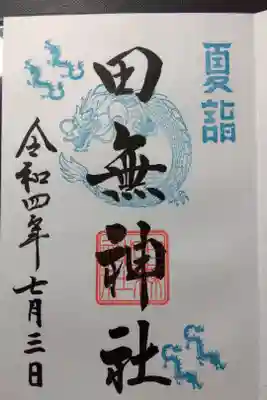 夏詣
田無神社
令和四年七月三日